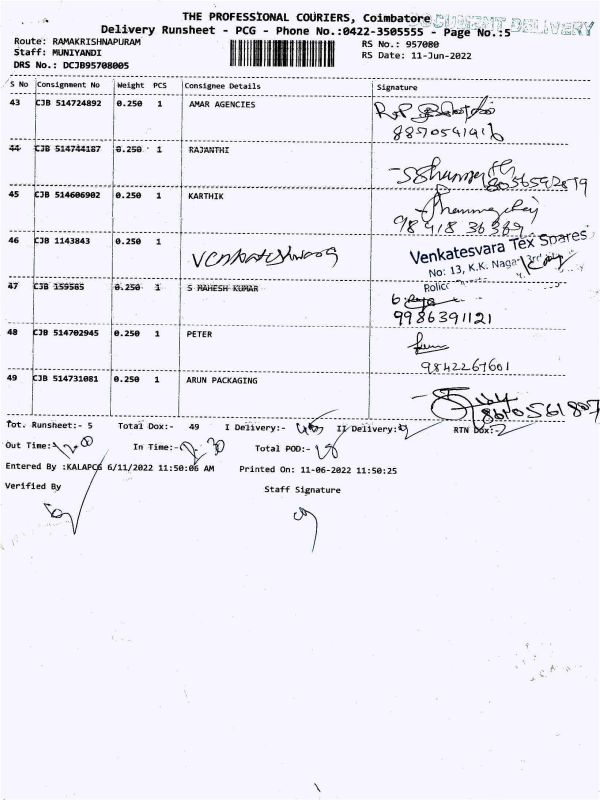 THE PROFESSIONAL COURIERS, Coimbatore
DOCUMENT DELIVERY
Delivery Runsheet - PCG - Phone No.:0422-3505555 - Page No.:5
Route: RAMAKRISHNAPURAM
RS No.: 957080
Staff: MUNIYANDI
RS Date: 11-Jun-2022
DRS No.: DCJB95708005
S No Consignment No Weight PCS Consignee Details Signature
43 CJB 514724892 0.250 1 AMAR AGENCIES
44 CJB 514744187 0.250 1 RAJANTHI
8056592819
45 CJB 514606902 0.250 1 KARTHIK
46 CJB 1143843 0.250 1
Venkatesvara Tex Spares
No: 13, K.K. Nagar 3rd
47 CJB 159565 0.250 1 S MAHESH KUMAR
9986391121
48 CJB 514702945 0.250 1 PETER
9842267601
49 CJB 514731081 0.250 1 ARUN PACKAGING
Tot. Runsheet:- 5 Total Dox:- 49 I Delivery:- II Delivery:- RTN Dox:-2
Out Time:- 12.00 In Time:- Total POD:-
Entered By :KALAPCG 6/11/2022 11:50:06 AM Printed On: 11-06-2022 11:50:25
Verified By Staff Signature